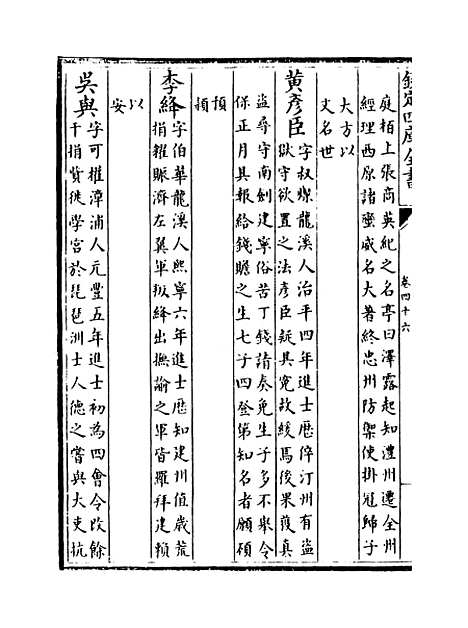 欽定四庫全書
卷四十六
庭栢上張商英紀之名亭曰澤露起知澧州遷全州
經理西原諸蠻威名大著終忠州防禦使掛冠歸子
大方以
文名世
黃彥臣
字叔燦龍溪人治平四年進士歴倅汀州有盜
獄守欲置之法彥臣疑其寃故緩焉後果獲真
盜尋守南劍建寧俗苦丁錢請奏免生子多不舉令
保正月具報給錢贍之生七子四登第知名者願碩
預
頎
李絳
字伯華龍溪人熙寧六年進士歴知建州值歲荒
捐糴賑濟左翼軍叛絳出撫諭之軍皆羅拜建頼
以
安
吳與
字可權漳浦人元豐五年進士初為四會令改餘
干捐貲徙學宮於琵琶洲士人德之嘗與大吏抗